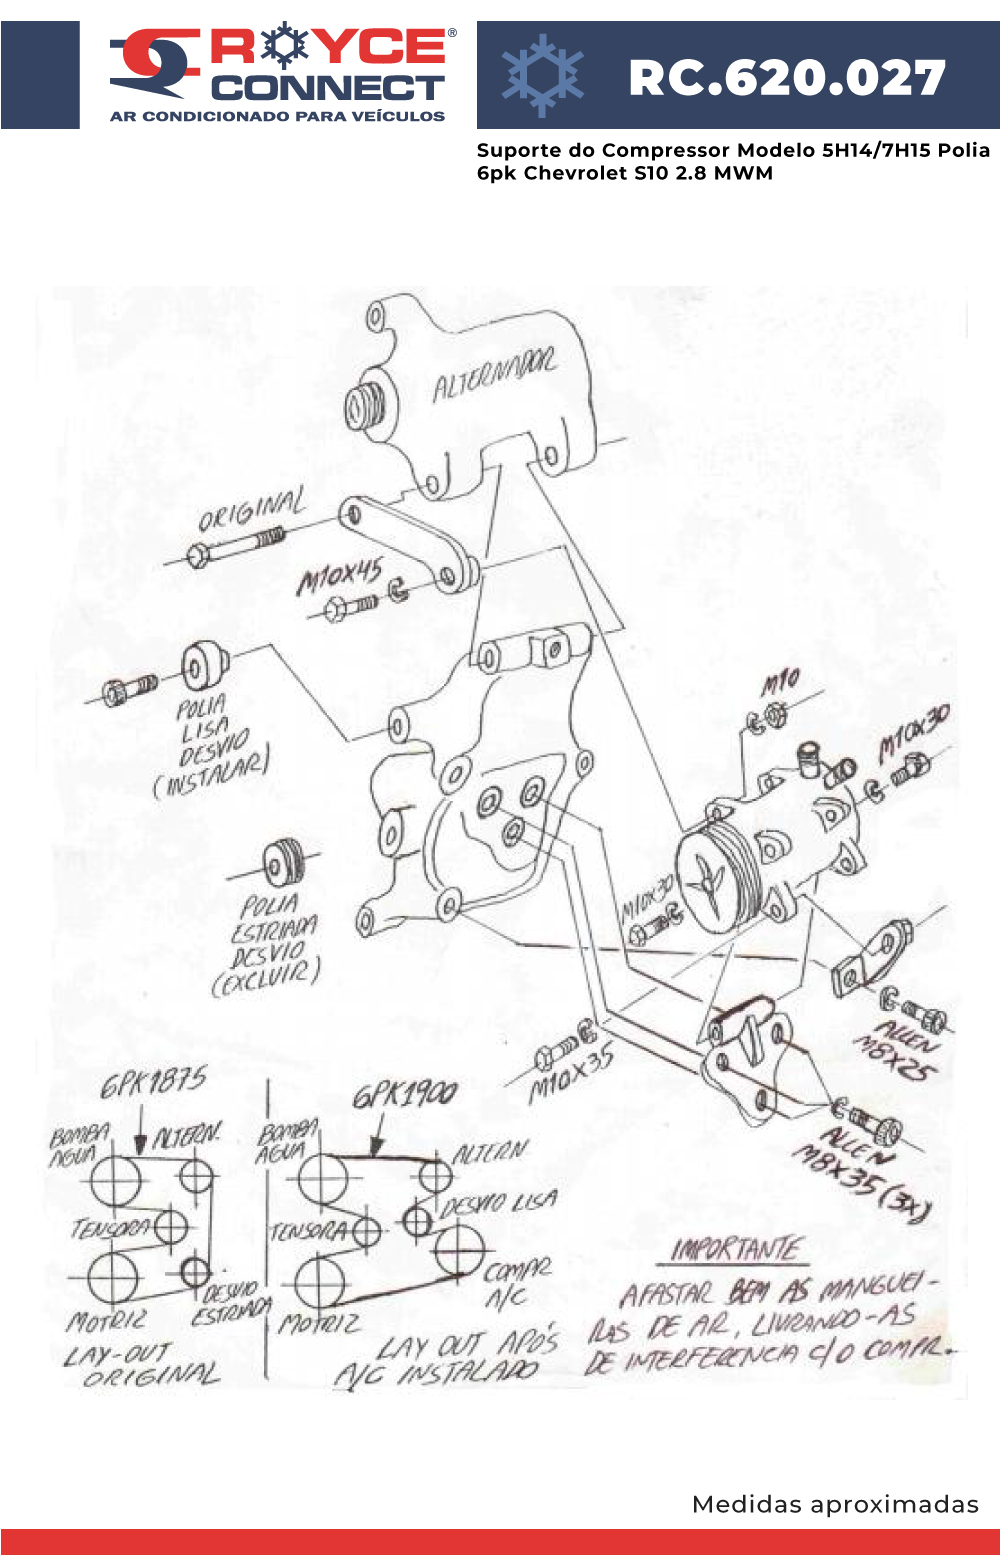 ROYCE®
CONNECT
AR CONDICIONADO PARA VEÍCULOS
RC.620.027
Suporte do Compressor Modelo 5H14/7H15 Polia
6pk Chevrolet S10 2.8 MWM
ALTERNADOR
ORIGINAL
M10X45
POLIA
LISA
DESVIO
(INSTALAR)
M10
M10X30
POLIA
ESTRIADA
DESVIO
(EXCLUIR)
M10X30
ALLEN
M8X25
M10X35
ALLEN
M8X35(3x)
6PK1875
BOMBA
AGUA
ALTERN.
TENSORA
DESVIO
ESTRIADA
MOTRIZ
LAY-OUT
ORIGINAL
6PK1900
BOMBA
AGUA
ALTERN
DESVIO LISA
TENSORA
COMPR
A/C
MOTRIZ
LAY OUT APÓS
A/C INSTALADO
IMPORTANTE
AFASTAR BEM AS MANGUEI-
RAS DE AR, LIVRANDO-AS
DE INTERFERENCIA C/O COMPR.
Medidas aproximadas